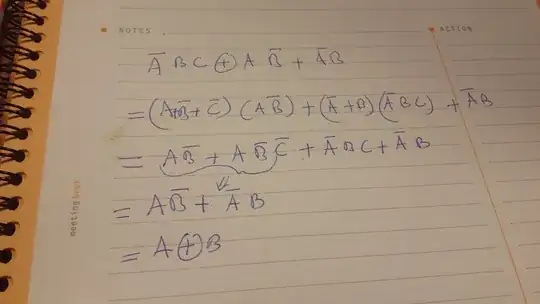 NOTES
ACTION
A̅ B C ⊕ A B̅ + A̅B
= (A+B̅ + C̅) (A B̅) + (A̅ + B) (A̅ B C) + A̅ B
= A B̅ + A B̅ C̅ + A̅ B C + A̅ B
= A B̅ + A̅ B
= A ⊕ B